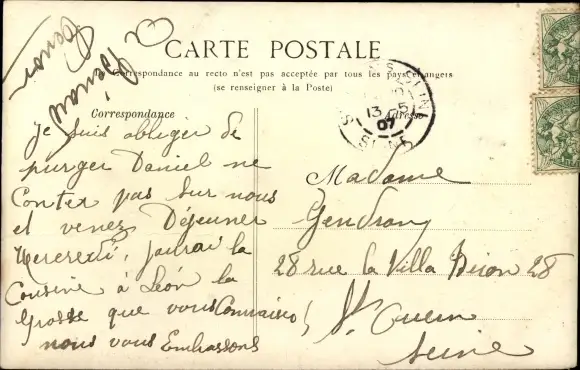 CARTE POSTALE
La Correspondance au recto n'est pas acceptée par tous les pays étrangers
(se renseigner à la Poste)
Correspondance
Adresse
je suis obliger de
purger Daniel ne
Conter pas sur nous
et venez Déjeuner
Mercredi, jaurai la
Cousine à Léon la
grosse que vous Connaissez
nous vous Embrassons
Bénard
Madame
Gendron
28 rue la Villa Biron 28
St Ouen
Seine
13 5
07